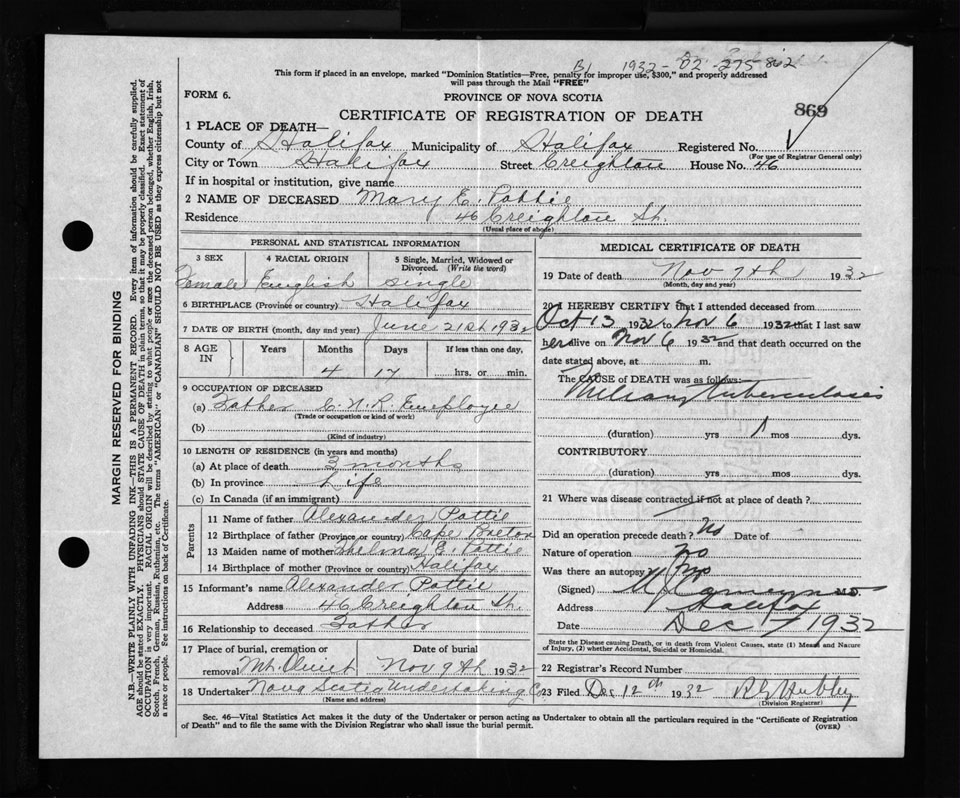 B1 1932-02-275862
This form if placed in an envelope, marked "Dominion Statistics—Free, penalty for improper use, $300," and properly addressed
will pass through the Mail "FREE"
FORM 6.
PROVINCE OF NOVA SCOTIA
869
CERTIFICATE OF REGISTRATION OF DEATH
1 PLACE OF DEATH—
County of Halifax Municipality of Halifax Registered No.
(For use of Registrar General only)
City or Town Halifax Street Creighton House No. 46
If in hospital or institution, give name
2 NAME OF DECEASED Mary E. Pottie
Residence 46 Creighton St.
(Usual place of abode)
PERSONAL AND STATISTICAL INFORMATION
3 SEX 4 RACIAL ORIGIN 5 Single, Married, Widowed or Divorced. (Write the word)
Female English single
6 BIRTHPLACE (Province or country) Halifax
7 DATE OF BIRTH (month, day and year) June 21st 1932
8 AGE IN Years Months Days If less than one day,
4 17 hrs. or min.
9 OCCUPATION OF DECEASED
(a) Father C.N.R. Employee
(Trade or occupation or kind of work)
(b)
(Kind of industry)
10 LENGTH OF RESIDENCE (in years and months)
(a) At place of death 3 months
(b) In province Life
(c) In Canada (if an immigrant)
Parents
11 Name of father Alexander Pottie
12 Birthplace of father (Province or country) Cape Breton
13 Maiden name of mother Thelma E. Pottie
14 Birthplace of mother (Province or country) Halifax
15 Informant's name Alexander Pottie
Address 46 Creighton St.
16 Relationship to deceased Father
17 Place of burial, cremation or removal Date of burial
Mt. Olivet Nov 9th 1932
18 Undertaker Nova Scotia Undertaking Co
(Name and address)
MEDICAL CERTIFICATE OF DEATH
19 Date of death Nov 7th 1932
(Month, day and year)
20 I HEREBY CERTIFY that I attended deceased from
Oct 13 1932 to Nov 6 1932 that I last saw
her alive on Nov 6 1932 and that death occurred on the
date stated above, at m.
The CAUSE of DEATH was as follows:
Miliary tuberculosis
(duration) yrs 1 mos dys.
CONTRIBUTORY
(duration) yrs. mos. dys.
21 Where was disease contracted if not at place of death?
Did an operation precede death? No Date of
Nature of operation no
Was there an autopsy? no
(Signed) M.D.
Address Halifax
Date Dec 7 1932
State the Disease causing Death, or in death from Violent Causes, state (1) Means and Nature
of Injury, (2) whether Accidental, Suicidal or Homicidal.
22 Registrar's Record Number
23 Filed Dec 12th 1932
(Division Registrar)
Sec. 46—Vital Statistics Act makes it the duty of the Undertaker or person acting as Undertaker to obtain all the particulars required in the "Certificate of Registration
of Death" and to file the same with the Division Registrar who shall issue the burial permit.
(OVER)
MARGIN RESERVED FOR BINDING
N.B.—WRITE PLAINLY WITH UNFADING INK—THIS IS A PERMANENT RECORD. Every item of information should be carefully supplied.
AGE should be stated EXACTLY. PHYSICIANS should STATE CAUSE OF DEATH in plain terms, so that it may be properly classified. Exact statement of
OCCUPATION is very important. RACIAL ORIGIN will be described by stating to what people or race the deceased person belonged, whether English, Irish,
Scotch, French, German, Russian, Ruthenian, etc. The terms "AMERICAN" or "CANADIAN" SHOULD NOT BE USED as they express citizenship but not
a race or people. Fee instructions on back of Certificate.